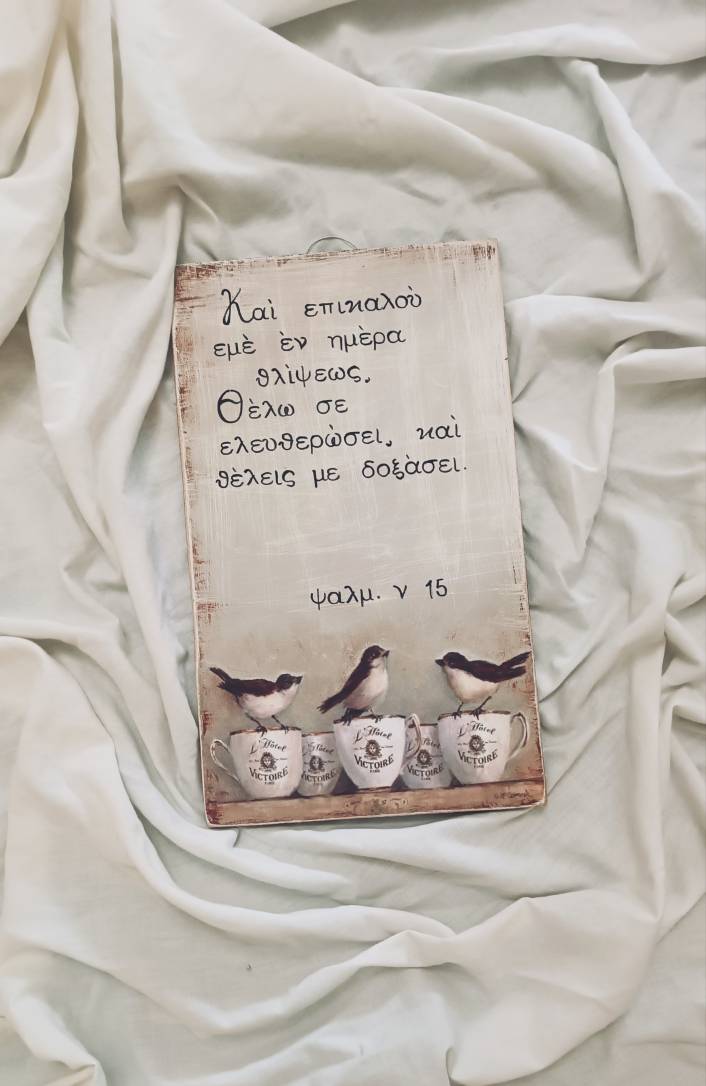 Καὶ επικαλοὺ
εμὲ ὲν ημὲρα
θλὶψεως,
Θὲλω σε
ελευθερὼσει, καὶ
θὲλεις με δοξὰσει.
ψαλμ. ν 15
L'Hôtel
VICTOIRE
L'Hôtel
VICTOIRE
PARIS
L'Hôtel
VICTOIRE
PARIS
L'Hôtel
VICTOIRE
L'Hôtel
VICTOIRE
PARIS